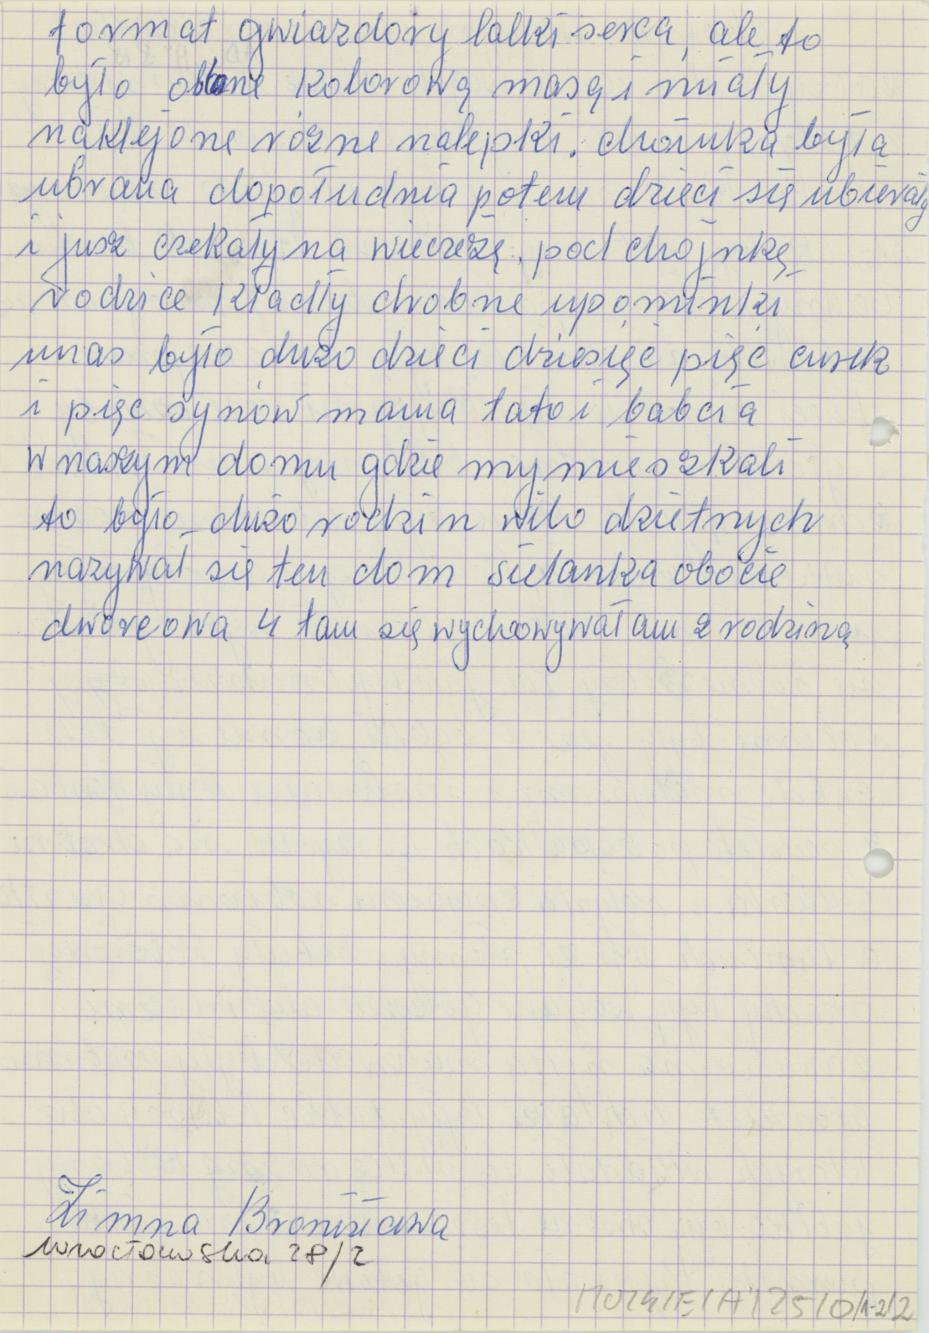 format gwiazdory lalki serca, ale to
było oblane kolorową masą i miały
naklejone rózne nalepki. choinka była
ubrana dopołudnia potem dzieci się ubierały
i jusz czekały na wieczeżę. pod chojnkę
rodzice kładły drobne upominki
unas było dużo dzieci dziesięć pięć curek
i pięc synów mama tato i babcia
w naszym domu gdzie my mieszkali
to było dużo rodzin wilo dzietnych
nazywał się ten dom sielanka obocie
dworcowa 4 tam się wychowywałam z rodziną
Zimna Bronisława
28/2